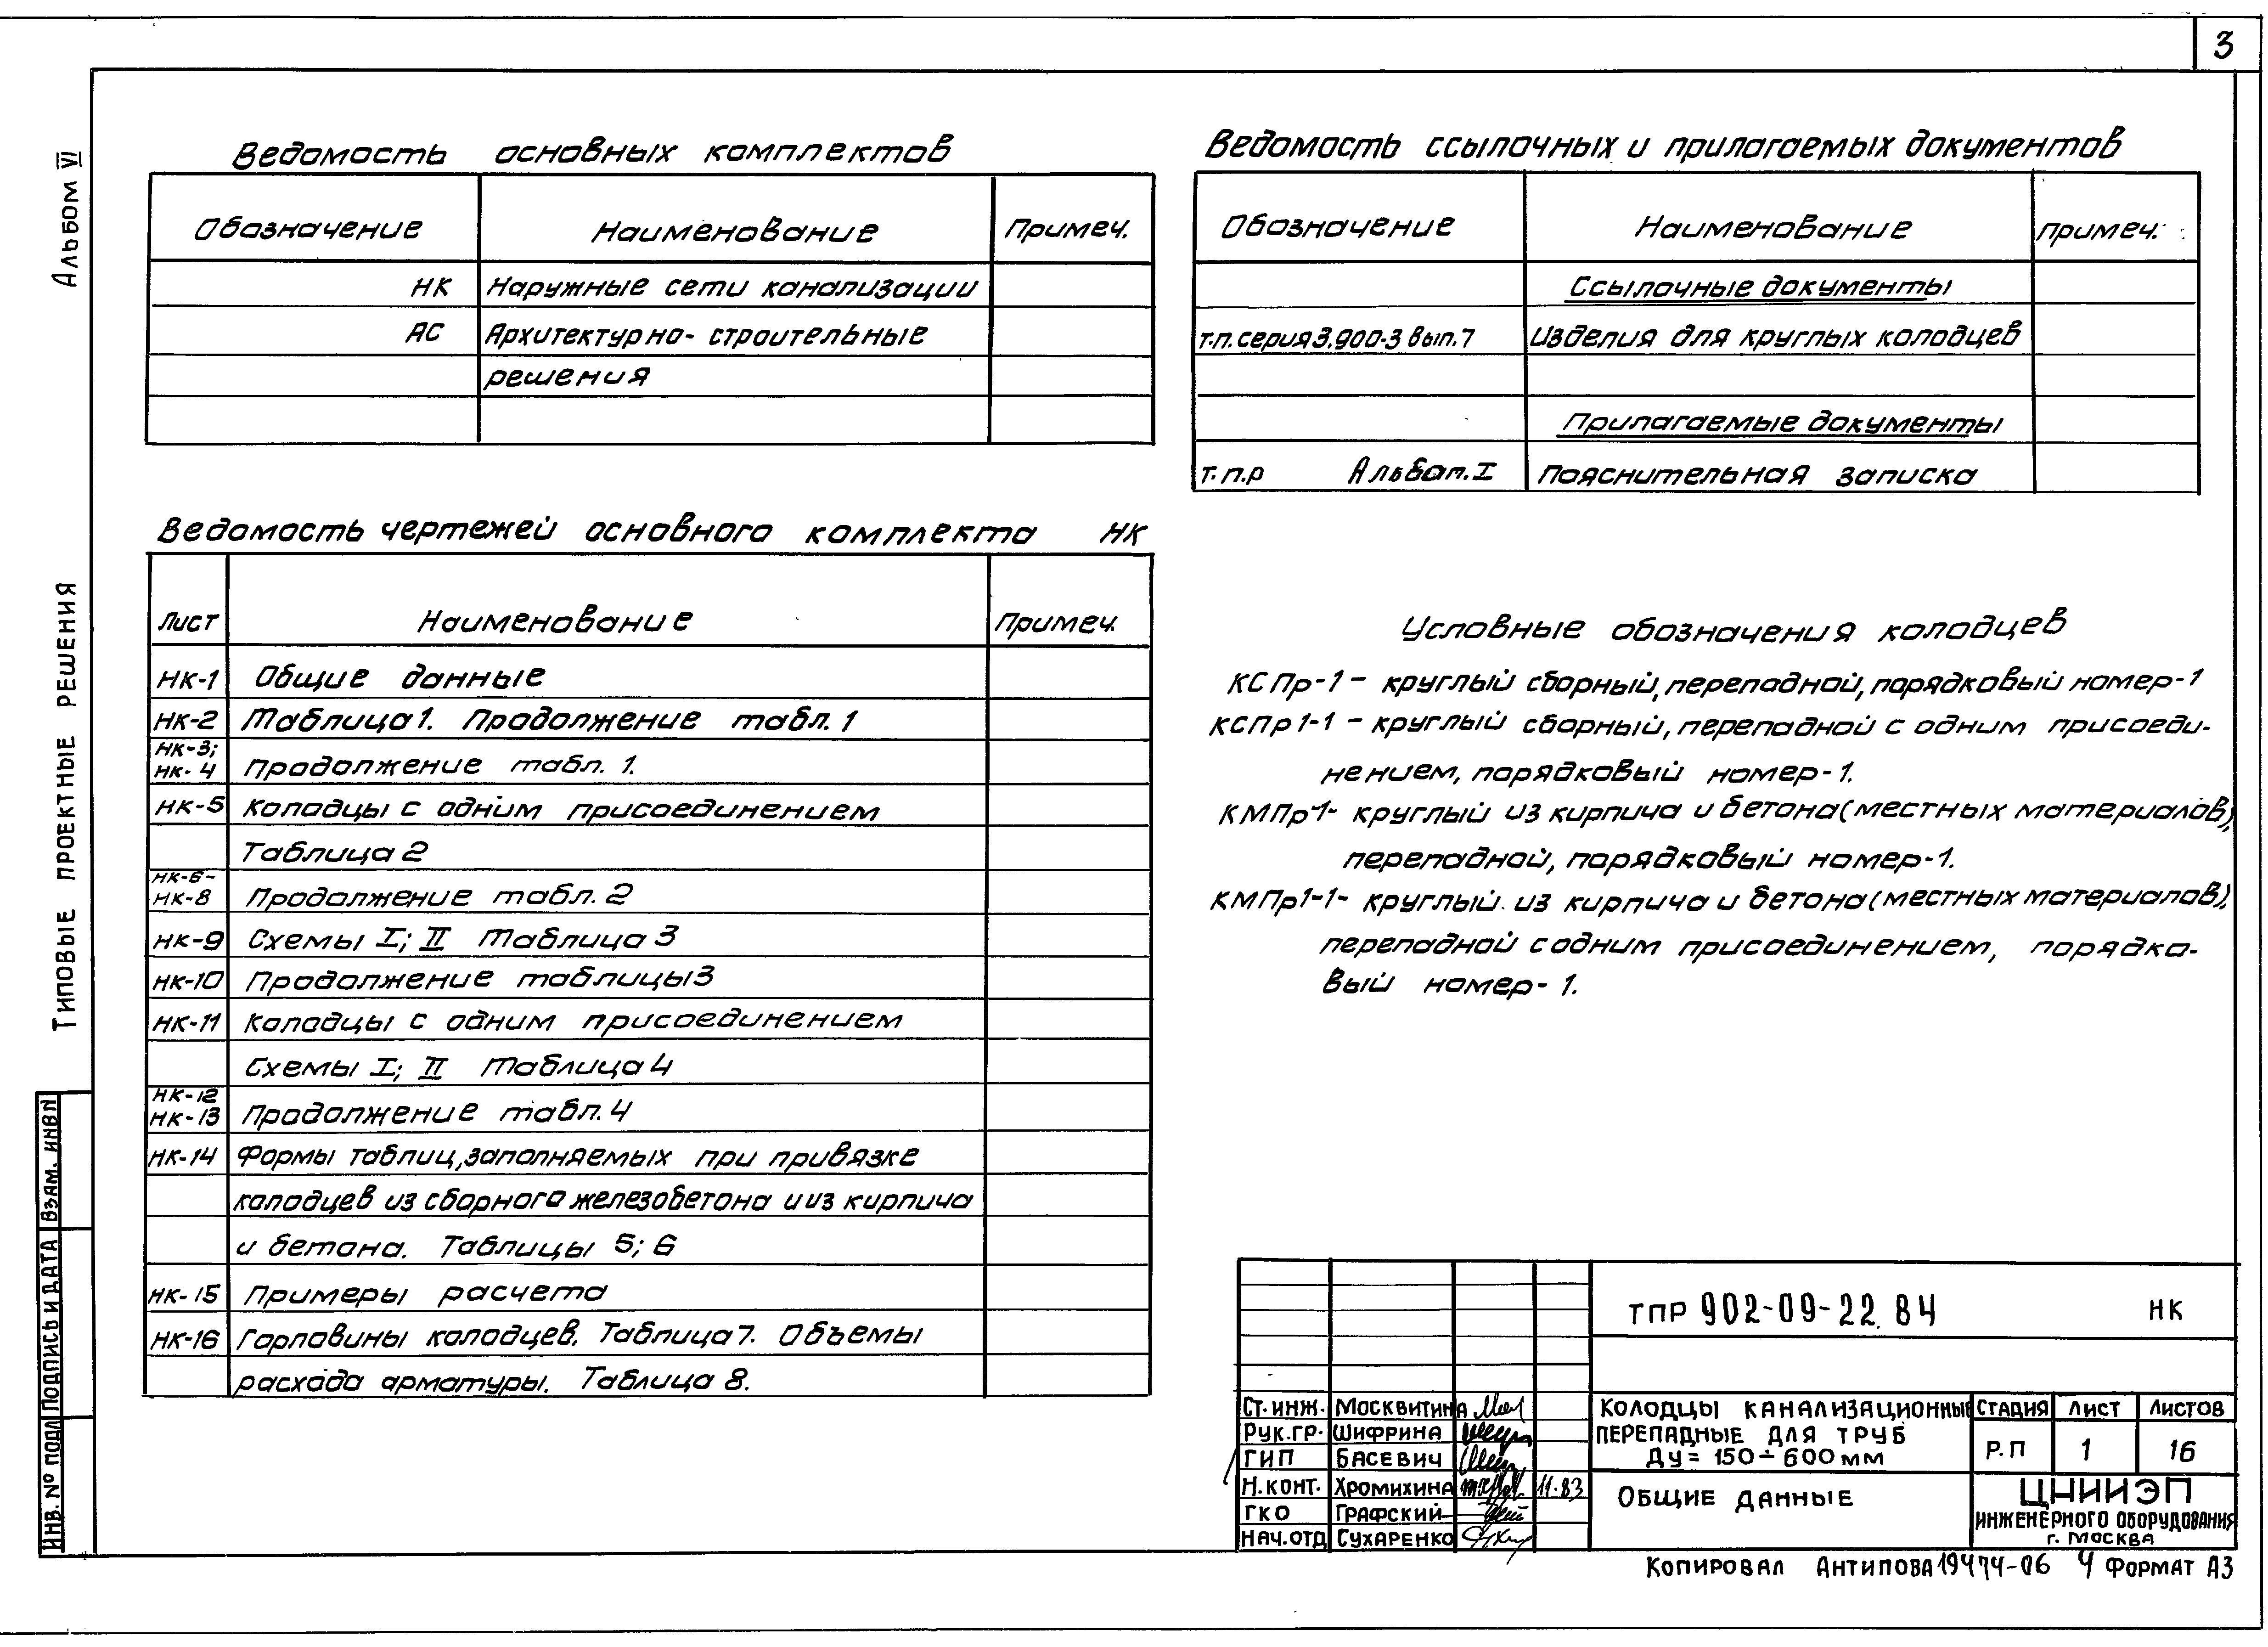 3
Альбом VI
Типовые проектные решения
Ведомость основных комплектов
Обозначение Наименование Примеч.
НК Наружные сети канализации
АС Архитектурно-строительные
решения
Ведомость чертежей основного комплекта НК
Лист Наименование Примеч.
НК-1 Общие данные
НК-2 Таблица 1. Продолжение табл. 1
НК-3;
НК-4 Продолжение табл. 1.
НК-5 Колодцы с одним присоединением
Таблица 2
НК-6-
НК-8 Продолжение табл. 2
НК-9 Схемы I; II Таблица 3
НК-10 Продолжение таблицы 3
НК-11 Колодцы с одним присоединением
Схемы I; II Таблица 4
НК-12
НК-13 Продолжение табл. 4
НК-14 Формы таблиц, заполняемых при привязке
колодцев из сборного железобетона и из кирпича
и бетона. Таблицы 5; 6
НК-15 Примеры расчета
НК-16 Горловины колодцев. Таблица 7. Объемы
расхода арматуры. Таблица 8.
Ведомость ссылочных и прилагаемых документов
Обозначение Наименование Примеч.
Ссылочные документы
т.п. серия 3.900-3 вып. 7 Изделия для круглых колодцев
Прилагаемые документы
т.п.р Альбом I Пояснительная записка
Условные обозначения колодцев
КСПр-1 - круглый сборный, перепадной, порядковый номер-1
КСПр1-1 - круглый сборный, перепадной с одним присоеди-
нением, порядковый номер-1.
КМПр-1- круглый из кирпича и бетона (местных материалов),
перепадной, порядковый номер-1.
КМПр1-1- круглый из кирпича и бетона (местных материалов),
перепадной с одним присоединением, порядко-
вый номер-1.
ТПР 902-09-22.84 НК
Ст. инж. Москвитина
Рук. гр. Шифрина
ГИП Басевич
Н. конт. Хромихина 11.83
ГКО Графский
Нач. отд Сухаренко
Колодцы канализационные
перепадные для труб
Ду = 150÷600 мм
Стадия Лист Листов
Р.П 1 16
Общие данные
ЦНИИЭП
инженерного оборудования
г. Москва
Инв. № подл Подпись и дата Взам. инв N
Копировал Антипова 19474-06 4 Формат А3